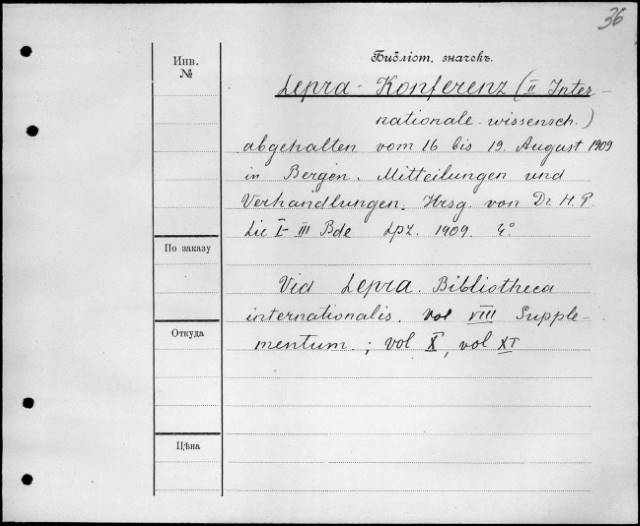 36
Инв.
№
Библіот. значекъ.
Lepra-Konferenz (II Inter-
nationale wissensch.)
abgehalten vom 16 bis 19. August 1909
in Bergen. Mitteilungen und
Verhandlungen. Hrsg. von Dr. H. P.
Lie I-III Bde Lpz. 1909. 4°.
По заказу
Vid Lepra. Bibliotheca
internationalis. vol VIII Supple-
Откуда
mentum.; vol X, vol XI
Цѣна